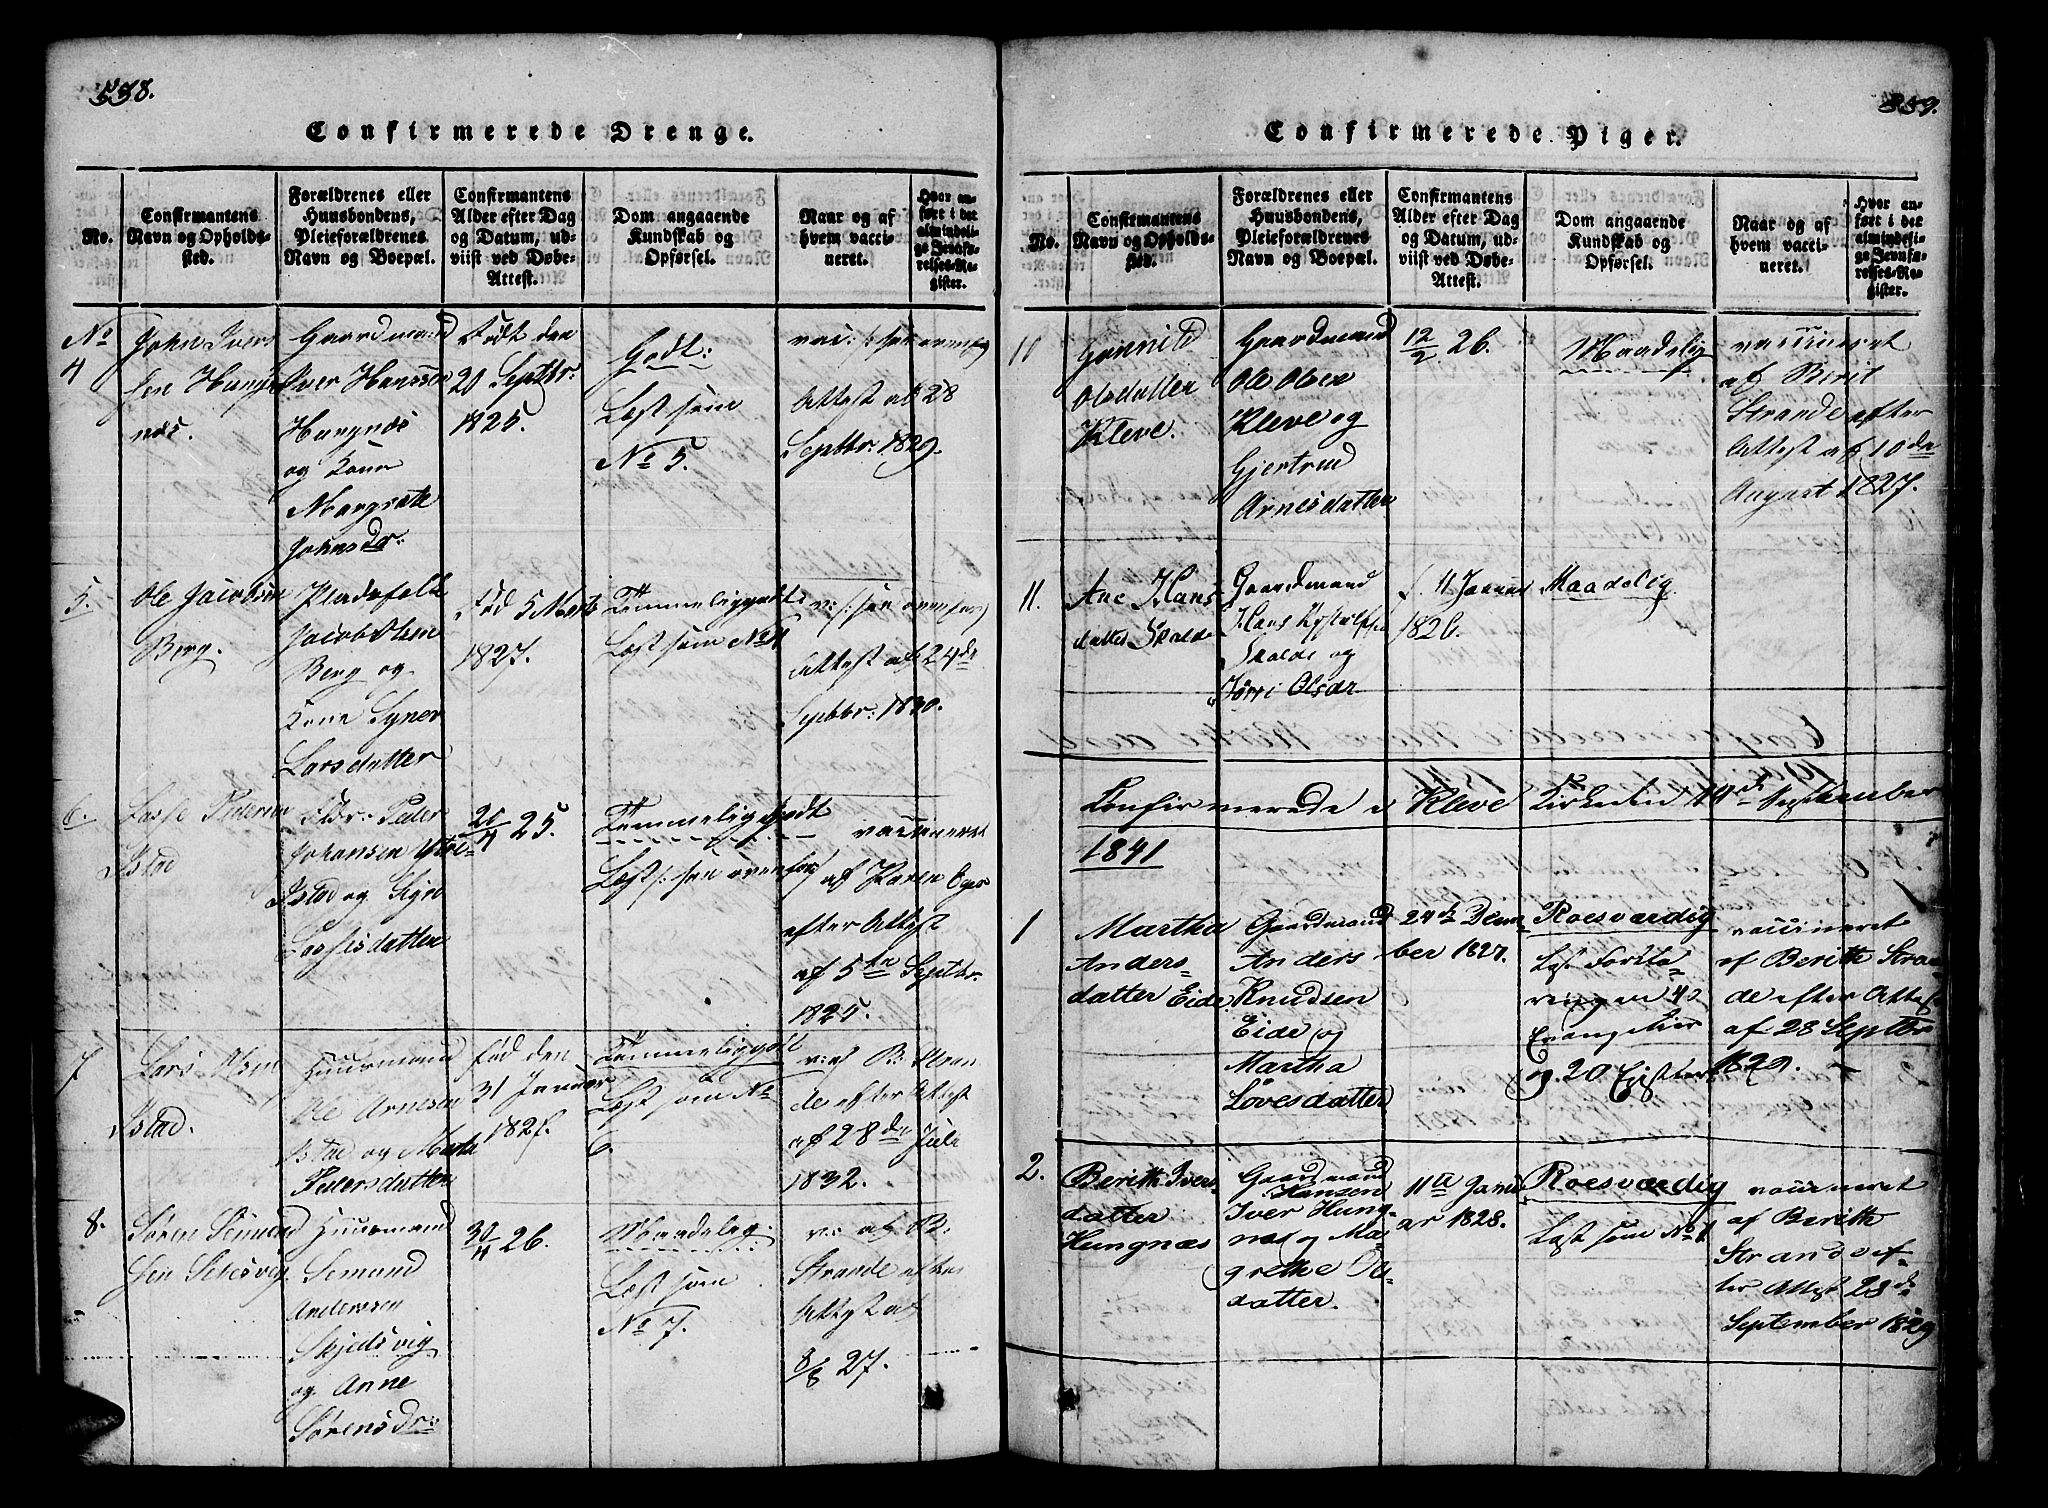 538.
Confirmerede Drenge.
No.
Confirmantens
Navn og Opholds-
sted.
Forældrenes eller
Huusbondens,
Pleieforældrenes
Navn og Boepæl.
Confirmantens
Alder efter Dag
og Datum, ud-
viist ved Døbe-
Attest.
Dom angaaende
Kundskab og
Opførsel.
Naar og af
hvem vacci-
neret.
Hvor an-
ført i det
almindeli-
ge Jevnfø-
relses-Re-
gister.
No
4
John Ivers
sen Hungs
næs.
Gaardmand
Iver Hanssen
Hungnæs
og Kone
Margrete
Johnsdr:
Født den
20 Septbr:
1825.
Godt:
Læst som
No 5.
vac: /: see ovenfor
Attest af 28
Septbr: 1829.
5.
Ole Jacobsen
Berg.
Pladsfolk
Jacob Olsen
Berg og
Kone Syner
Larsdatter
Fød 5 Marts
1827.
Temmeliggodt
Læst som No 4
v: /: see ovenfor)
Attest af 24de
Septbr: 1830.
6.
Lasse Pedersen
Istad
Fldr: Peder
Johansen Ytre-
Istad og Sign
Lassesdatter
20/4 25.
Temmeliggodt
Læst /: see ovenfor)
vaccineret
af Karen Eger
efter Attest
af 5te Septbr.
1825.
7
Lars Olsen
Istad.
Huusmand
Ole Arnesen
Istad og Marte
Pedersdatter
fød den
31 Januar
1827.
Temmeliggodt
Læst som No
6
v: af B: Stran
de efter Attest
af 28de Juli
1832.
8.
Søren Semund
sen
Huusmand
Semund
Anderssen
Skjedsvig
og Anne
Sørensdr:
30/4 26.
Maadelig.
Læst som
No 7.
v: af B:
Strande efter
Attest af
8/8 27.
539.
Confirmerede Piger.
No.
Confirmantens
Navn og Opholds-
sted.
Forældrenes eller
Huusbondens,
Pleieforældrenes
Navn og Boepæl.
Confirmantens
Alder efter Dag
og Datum, ud-
viist ved Døbe-
Attest.
Dom angaaende
Kundskab og
Opførsel.
Naar og af
hvem vacci-
neret.
Hvor an-
ført i det
almindeli-
ge Jevnfø-
relses-Re-
gister.
10
Gunnild
Olsdatter
Kleve.
Gaardmand
Ole Olsen
Kleve og
Gjertrud
Arnesdatter
12/2 26.
Maadelig
vaccineret
af Berit
Strande efter
Attest af 10de
August 1827.
11.
Ane Hans
datter Skolde
Gaardmand
Hans
Skolde og
Olsdr
f. 11 Januar
1826.
Maadelig
Confirmerede i Kleve Kirke den 19de September
1841
1
Martha
Anders-
datter Eide
Gaardmand
Anders
Knudsen
Eide og
Martha
Løvesdatter
24de Decem
ber 1827.
Roesværdig
Læst Forkla-
ringen 43
Evangelier
og 20 Epistler.
vaccineret
af Berith Stran
de efter Attest
af 28 Septbr
1829.
2.
Berith Ivers-
datter
Hungnæs
Gaardmand
Hansen
Iver Hung-
næs og Ma-
grethe
datter.
11te Janu
ar 1828.
Roesværdig
Læst som No 1
vaccineret
af Berith
Strande ef-
ter Attest 28de
September 1829